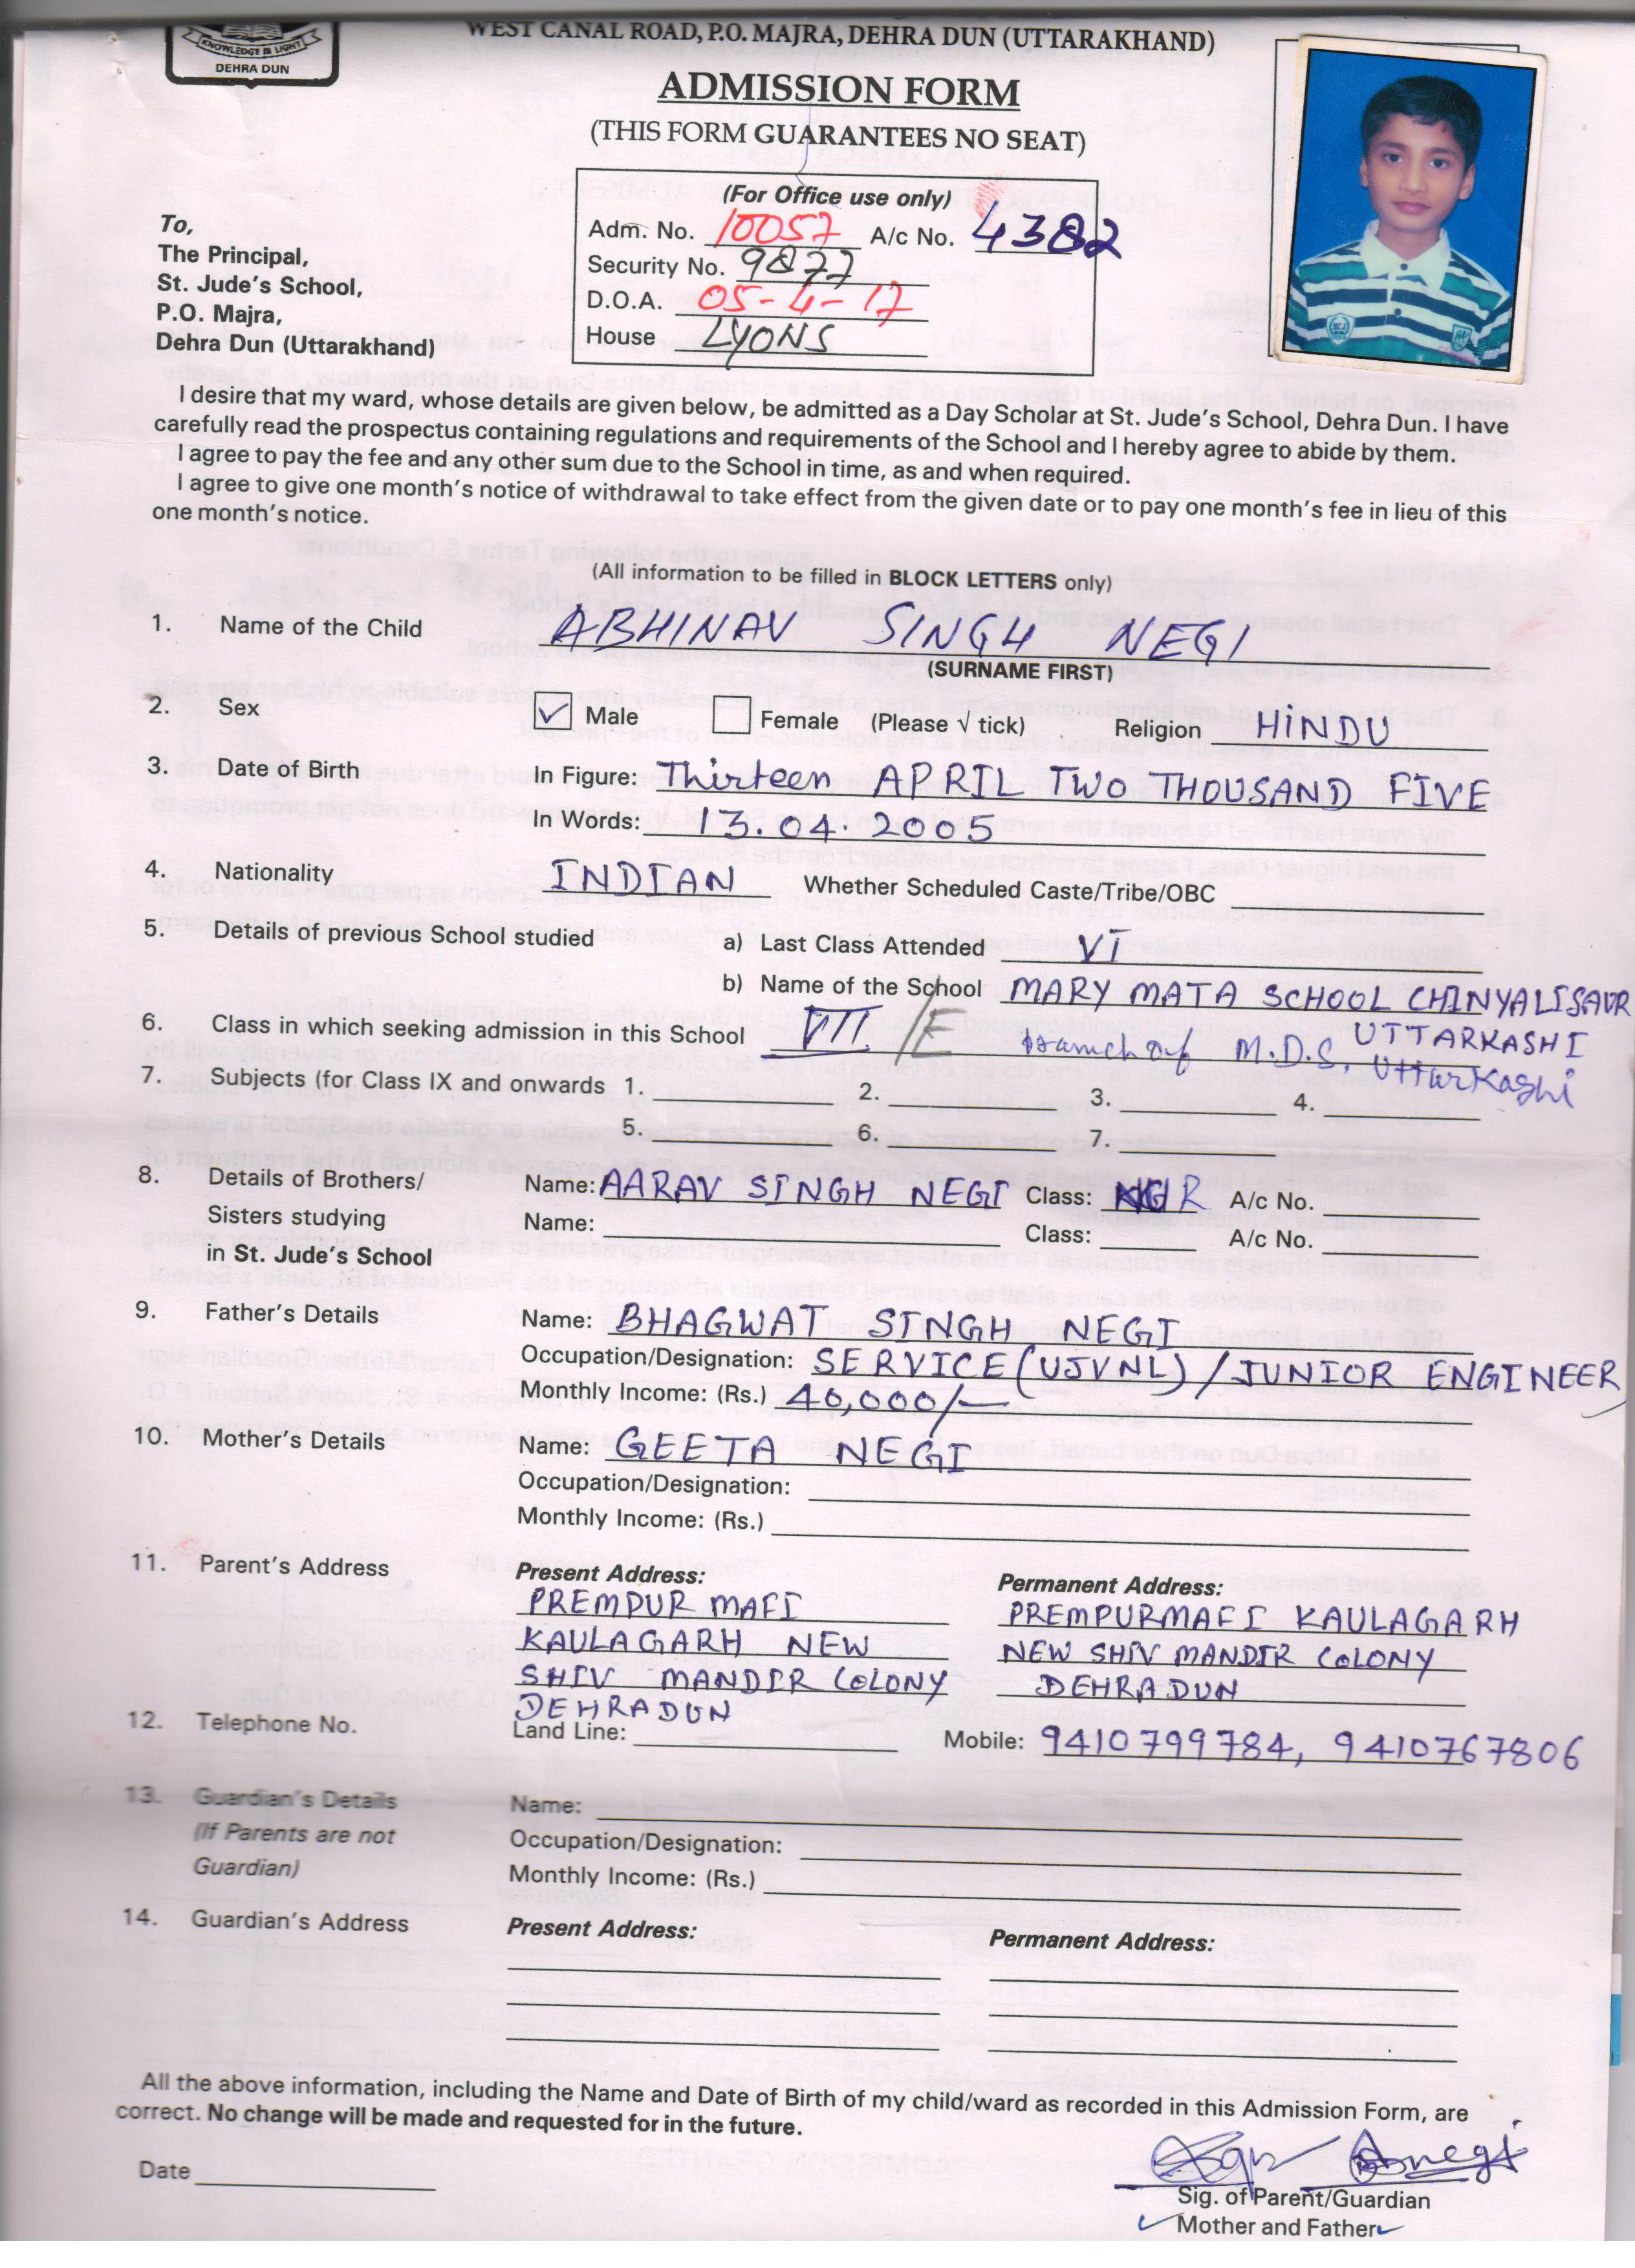 KNOWLEDGE IS LIGHT
DEHRA DUN
WEST CANAL ROAD, P.O. MAJRA, DEHRA DUN (UTTARAKHAND)
ADMISSION FORM
(THIS FORM GUARANTEES NO SEAT)
(For Office use only)
Adm. No. 10057 A/c No. 4382
Security No. 9877
D.O.A. 05-4-17
House LYONS
To,
The Principal,
St. Jude's School,
P.O. Majra,
Dehra Dun (Uttarakhand)
I desire that my ward, whose details are given below, be admitted as a Day Scholar at St. Jude's School, Dehra Dun. I have
carefully read the prospectus containing regulations and requirements of the School and I hereby agree to abide by them.
I agree to pay the fee and any other sum due to the School in time, as and when required.
I agree to give one month's notice of withdrawal to take effect from the given date or to pay one month's fee in lieu of this
one month's notice.
(All information to be filled in BLOCK LETTERS only)
1. Name of the Child ABHINAV SINGH NEGI
(SURNAME FIRST)
2. Sex Male Female (Please √ tick) Religion HINDU
3. Date of Birth In Figure: Thirteen APRIL TWO THOUSAND FIVE
In Words: 13.04.2005
4. Nationality INDIAN Whether Scheduled Caste/Tribe/OBC
5. Details of previous School studied a) Last Class Attended VI
b) Name of the School MARY MATA SCHOOL CHINYALISAUR
UTTARKASHI
6. Class in which seeking admission in this School VII /E branch of M.D.S, Uttarkashi
7. Subjects (for Class IX and onwards 1. 2. 3. 4.
5. 6. 7.
8. Details of Brothers/ Name: AARAV SINGH NEGI Class: R A/c No.
Sisters studying Name: Class: A/c No.
in St. Jude's School
9. Father's Details Name: BHAGWAT SINGH NEGI
Occupation/Designation: SERVICE (UJVNL) / JUNIOR ENGINEER
Monthly Income: (Rs.) 40,000/-
10. Mother's Details Name: GEETA NEGI
Occupation/Designation:
Monthly Income: (Rs.)
11. Parent's Address Present Address: Permanent Address:
PREMPUR MAFI PREMPURMAFI KAULAGARH
KAULAGARH NEW NEW SHIV MANDIR COLONY
SHIV MANDIR COLONY DEHRADUN
DEHRADUN
12. Telephone No. Land Line: Mobile: 9410799784, 9410767806
13. Guardian's Details Name:
(If Parents are not Occupation/Designation:
Guardian) Monthly Income: (Rs.)
14. Guardian's Address Present Address: Permanent Address:
All the above information, including the Name and Date of Birth of my child/ward as recorded in this Admission Form, are
correct. No change will be made and requested for in the future.
Date
Sig. of Parent/Guardian
Mother and Father